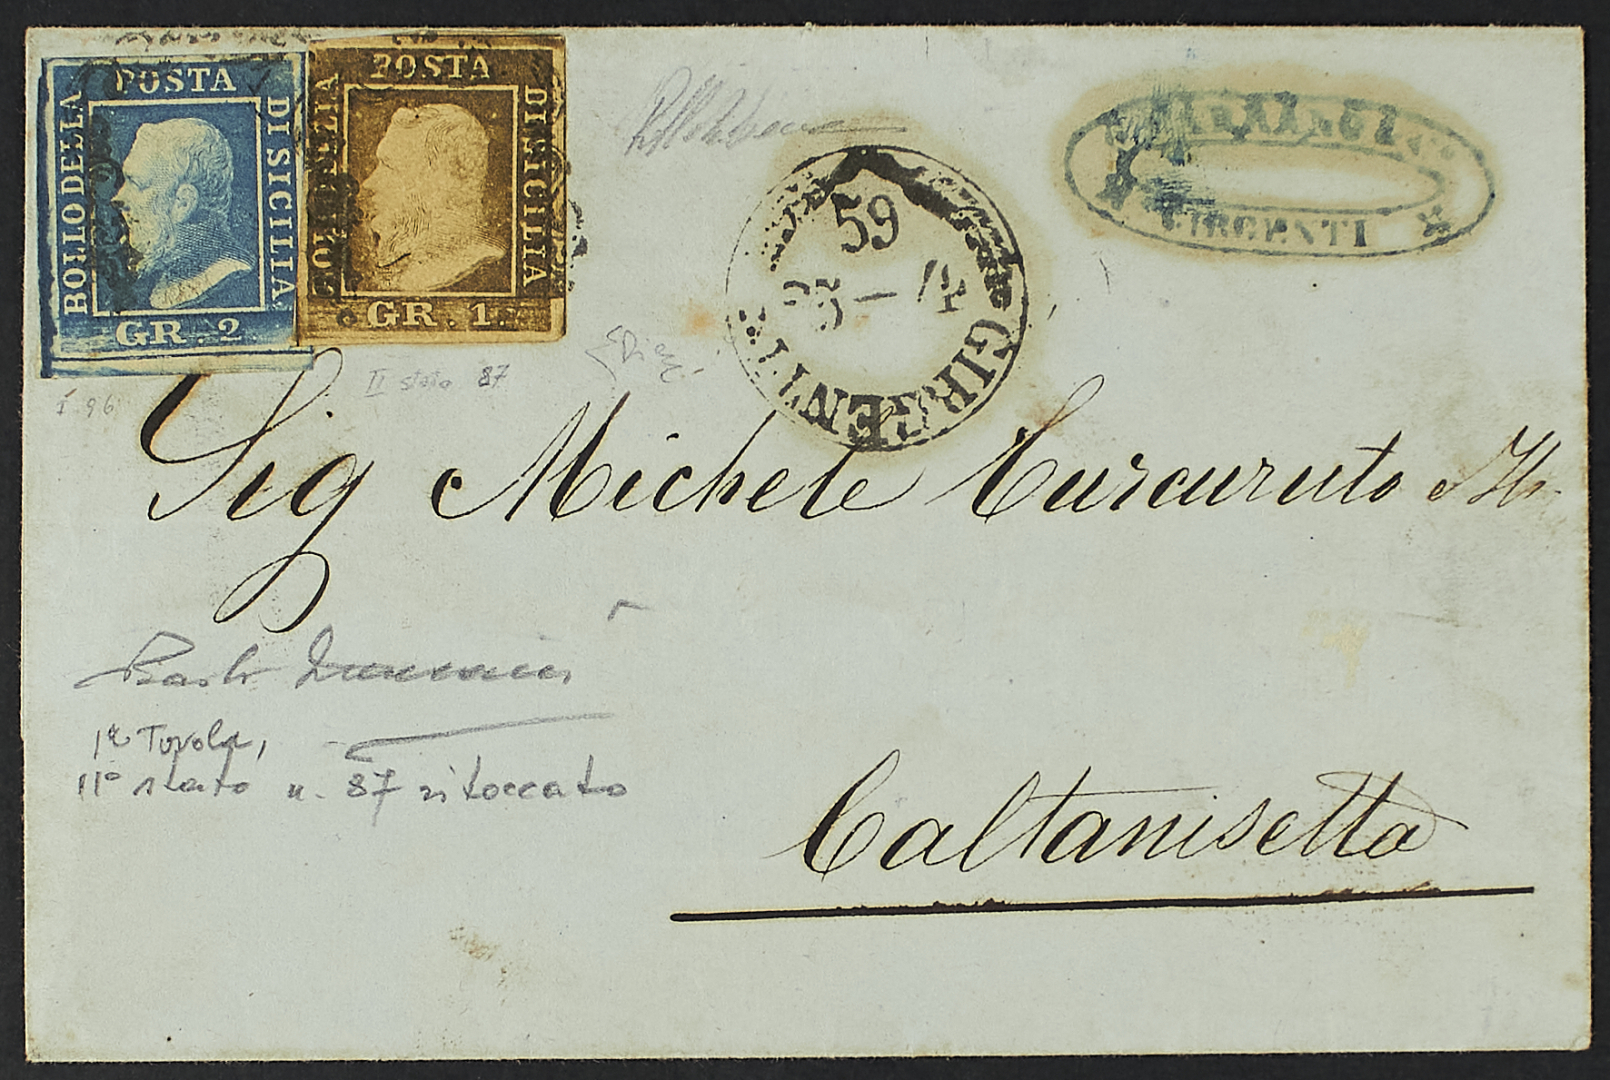 POSTA
BOLLO DELLA
DI SICILIA
GR. 2.
POSTA
BOL DELLA
DI SICILIA
GR. 1.
59
GIRGENTI
GIRGENTI
I 96
II stato 87
Sig Michele Curcuruto
1a Tavola,
II° stato n. 87 ritoccato
Caltanisetta